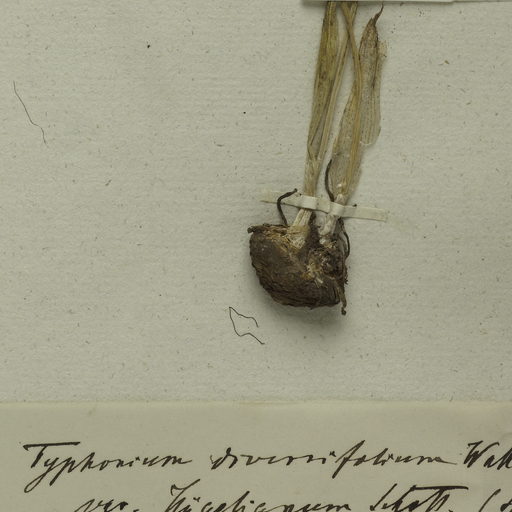 Typhonium diversifolium Wall
var. Hügelianum Schott. (